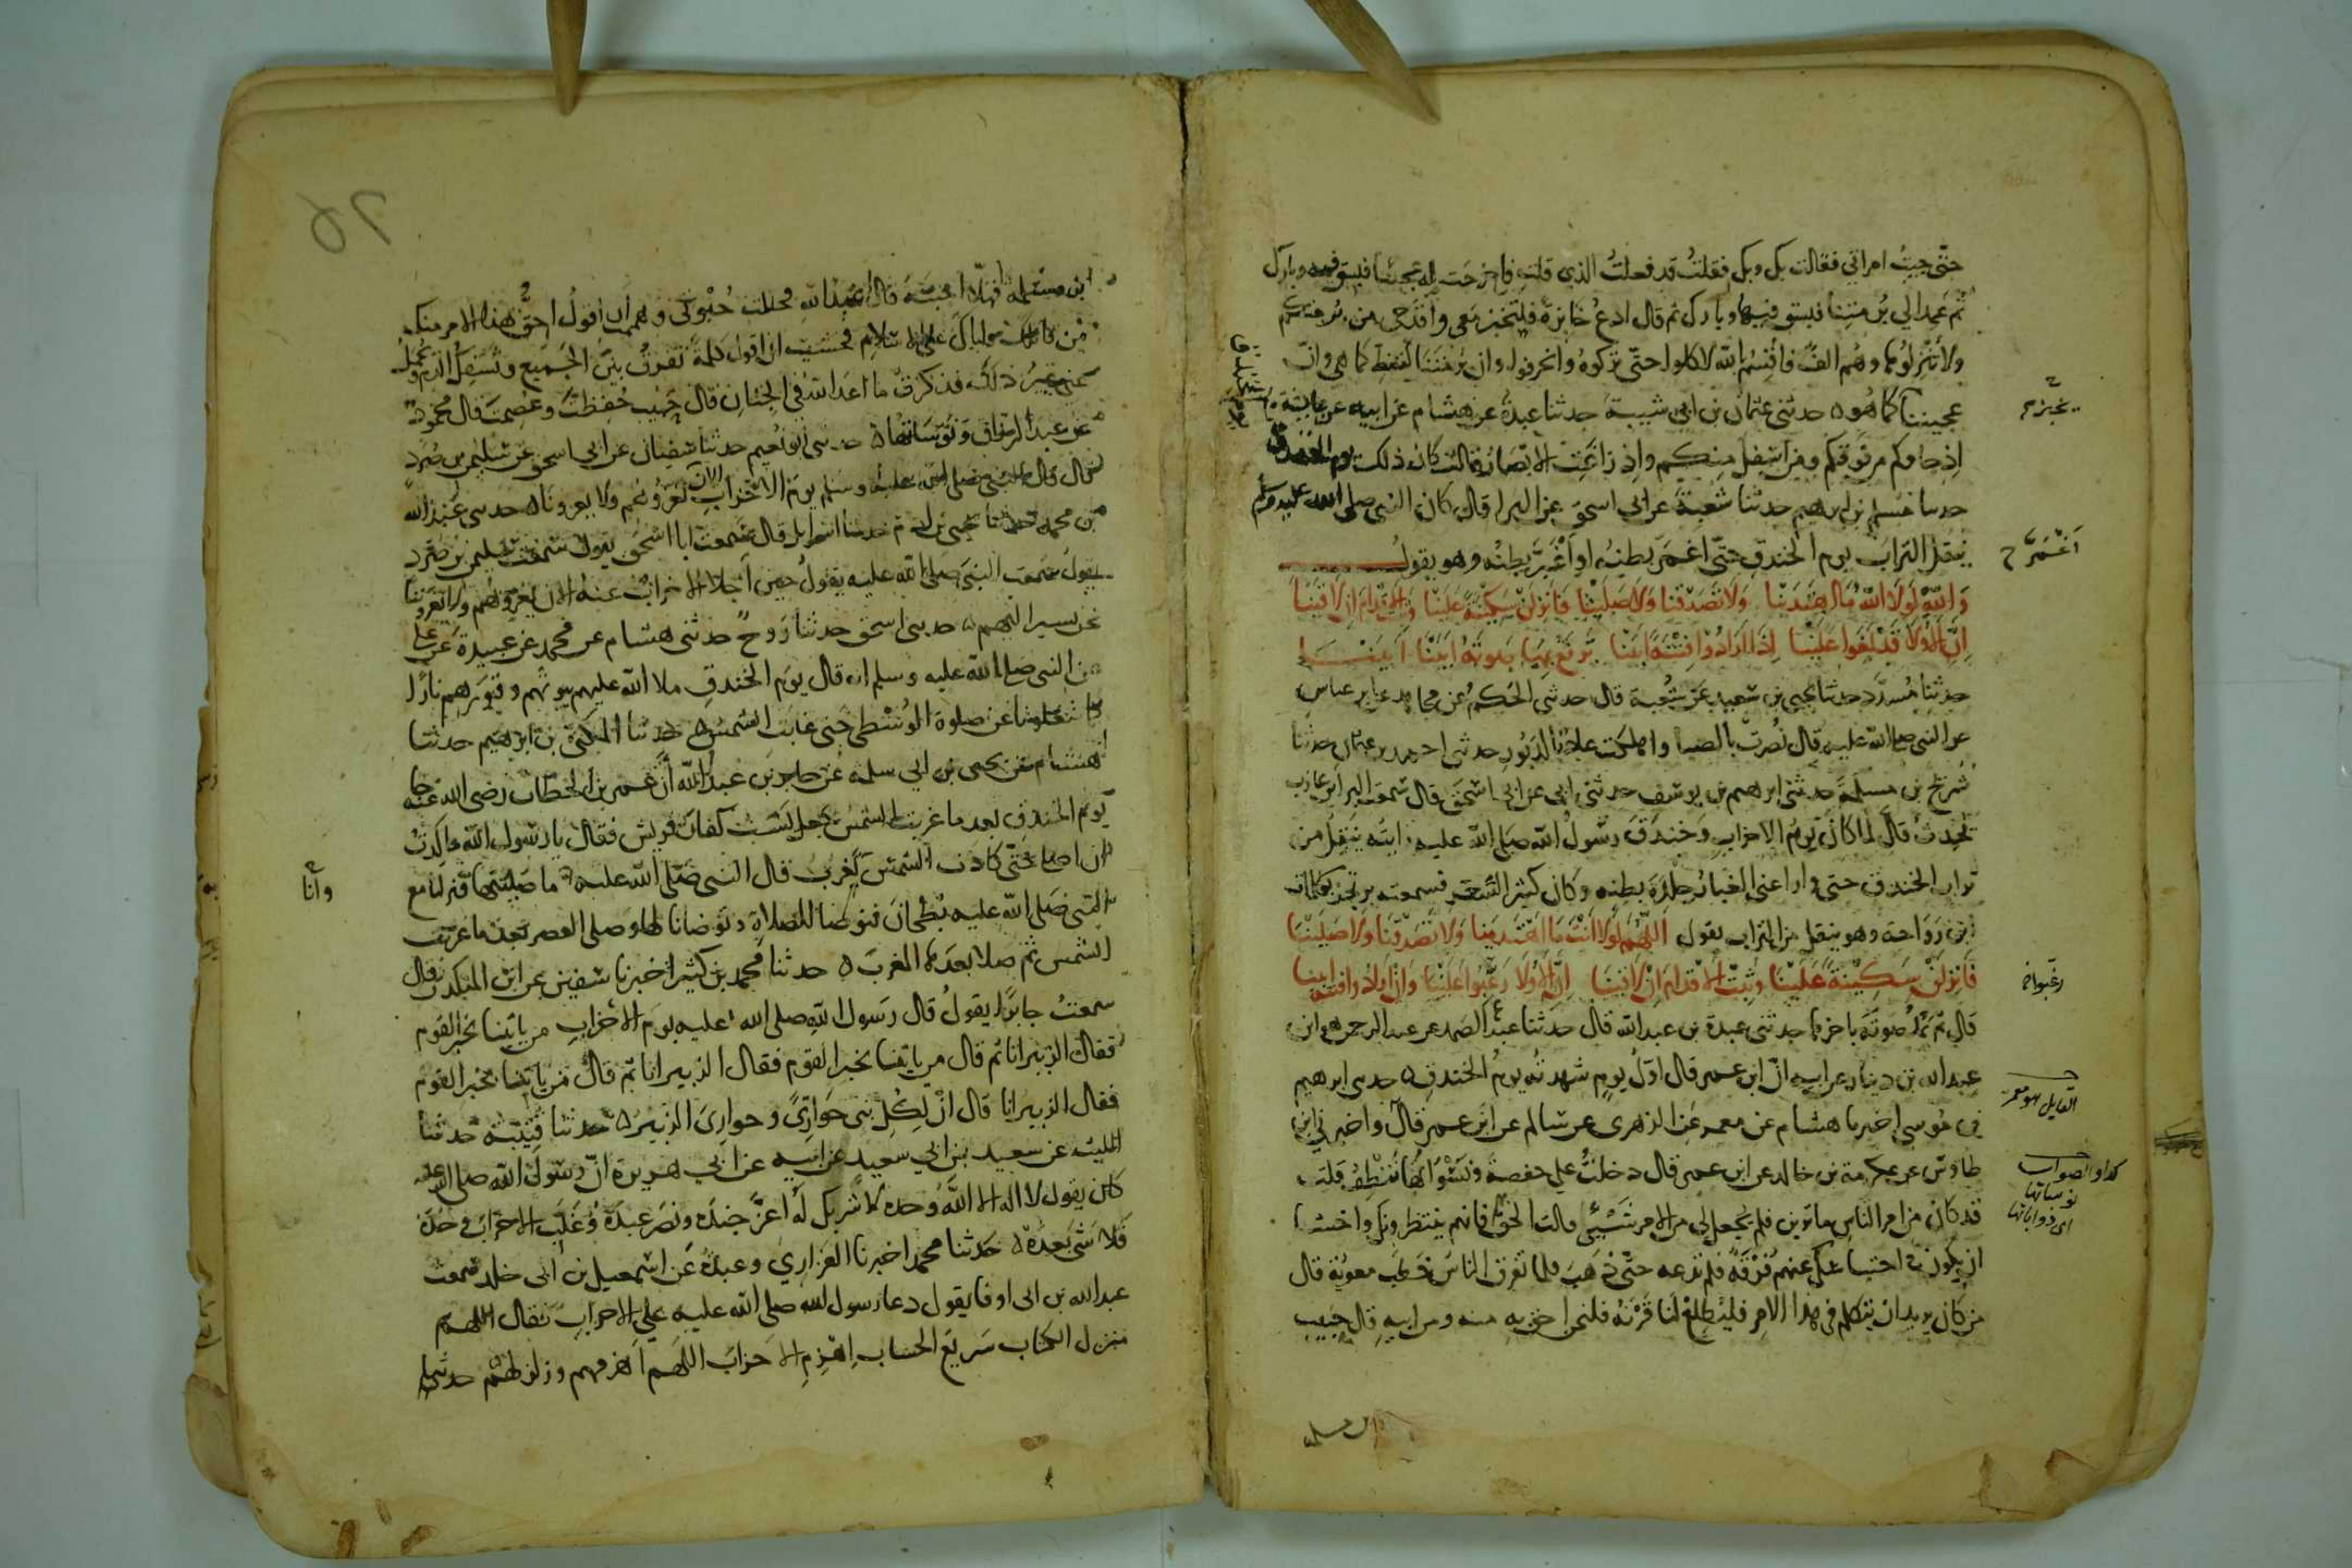 حتى جيت امراتي فقالت بك وبك فقلت قد فعلت الذي قلت فاخرجت له عجينا فبسق فيه وبارك
ثم عمد الي برمتنا فبسق فيها وبارك ثم قال ادع خابزة فلتخبز معي واقدحي من برمتكم
ولا تنزلوها وهم الف فاقسم بالله لاكلوا حتى تركوه وانحرفوا وان برمتنا لتغط كما هي وان
عجيننا كما هو حدثني عثمان بن ابي شيبة حدثنا عبدة عن هشام عن ابيه عن عايشة
اذ جاوكم من فوقكم ومن اسفل منكم واذ زاغت الابصار قالت كان ذلك يوم الخندق
حدثنا مسلم بن ابرهيم حدثنا شعبة عن ابي اسحق عن البرا قال كان النبي صلى الله عليه وسلم
ينقل التراب يوم الخندق حتى اغمر بطنه او اغبر بطنه وهو يقول
والله لولا الله ما اهتدينا ولا تصدقنا ولا صلينا فانزلن سكينة علينا وثبت الاقدام ان لاقينا
ان الاولا قد بغوا علينا اذا ارادوا فتنة ابينا يرفع بها صوته ابينا ابينا
حدثنا مسدد حدثنا يحيى بن سعيد عن شعبة قال حدثني الحكم عن مجاهد عن ابن عباس
عن النبي صلى الله عليه قال نصرت بالصبا واهلكت عاد بالدبور حدثني احمد بن عثمان حدثنا
شريح بن مسلمة حدثني ابرهيم بن يوسف حدثني ابي عن ابي اسحق قال سمعت البرا بن عازب
يحدث قال لما كان يوم الاحزاب وخندق رسول الله صلى الله عليه رايته ينقل من
تراب الخندق حتى وارا عني الغبار جلدة بطنه وكان كثير الشعر فسمعته يرتجز بكلمات
ابن رواحة وهو ينقل من التراب يقول اللهم لولا انت ما اهتدينا ولا تصدقنا ولا صلينا
فانزلن سكينة علينا وثبت الاقدام ان لاقينا ان الاولا رغبوا علينا وان ارادوا فتنة ابينا
قال ثم يمد صوته باخرها حدثني عبدة بن عبد الله قال حدثنا عبد الصمد عن عبد الرحمن هو ابن
عبد الله بن دينار عن ابيه ان ابن عمر قال اول يوم شهدته يوم الخندق حدثني ابرهيم
بن موسى اخبرنا هشام عن معمر عن الزهري عن سالم عن ابن عمر قال واخبرني ابن
طاوس عن عكرمة بن خالد عن ابن عمر قال دخلت على حفصة ونسواتها تنطف قلت
قد كان من امر الناس ما ترين فلم يجعل لي من الامر شيئ فقالت الحق فانهم ينتظرونك واخشا
ان يكون في احتباسك عنهم فرقة فلم تدعه حتى ذهب فلما تفرق الناس خطب معوية قال
من كان يريد ان يتكلم في هذا الامر فليطلع لنا قرنه فلنحن احق به منه ومن ابيه قال حبيب
ابن مسلمه
يوم الخندق
اغمر
رغبوا
القايل هو معمر
كذا والصواب
نوساتها
اي ذواباتها
ابن مسلمه فهلا اجبته قال عبد الله فحللت حبوتي وهممت ان اقول احق بهذا الامر منك
من قاتلك واباك على الاسلام فخشيت ان اقول كلمة تفرق بين الجميع وتسفك الدم ويحمل
عني غير ذلك فذكرت ما اعد الله في الجنان قال حبيب حفظت وعصمت قال محمود
عن عبد الرزاق ونوساتها حدثني ابو نعيم حدثنا سفيان عن ابي اسحق عن سليمن بن صرد
قال قال النبي صلى الله عليه وسلم يوم الاحزاب الان نغزوهم ولا يغزونا حدثني عبد الله
بن محمد حدثنا يحيى بن ادم حدثنا اسرايل قال سمعت ابا اسحق يقول سمعت سليمن بن صرد
يقول سمعت النبي صلى الله عليه يقول حين اجلا الاحزاب عنه الان نغزوهم ولا يغزوننا
نحن نسير اليهم حدثني اسحق حدثنا روح حدثني هشام عن محمد عن عبيدة عن علي
عن النبي صلى الله عليه وسلم انه قال يوم الخندق ملا الله عليهم بيوتهم وقبورهم نارا
كما شغلونا عن صلوة الوسطى حتى غابت الشمس حدثنا المكي بن ابرهيم حدثنا
هشام عن يحيى بن ابي سلمه عن جابر بن عبد الله ان عمر بن الخطاب رضي الله عنه جا
يوم الخندق بعد ما غربت الشمس جعل يسب كفار قريش فقال يا رسول الله ما كدت
ان اصلي حتى كادت الشمس تغرب قال النبي صلى الله عليه ما صليتها فنزلنا مع
النبي صلى الله عليه بطحان فتوضا للصلاة وتوضانا لها وصلى العصر بعد ما غربت
الشمس ثم صلا بعدها المغرب حدثنا محمد بن كثير اخبرنا سفين عن ابن المنكدر قال
سمعت جابرا يقول قال رسول الله صلى الله عليه يوم الاحزاب من ياتينا بخبر القوم
فقال الزبير انا ثم قال من ياتينا بخبر القوم فقال الزبير انا ثم قال من ياتينا بخبر القوم
فقال الزبير انا قال ان لكل نبي حواري وحواري الزبير حدثنا قتيبة حدثنا
الليث عن سعيد بن ابي سعيد عن ابيه عن ابي هريرة ان رسول الله صلى الله عليه
كان يقول لا اله الا الله وحده لا شريك له اعز جنده ونصر عبده وغلب الاحزاب وحده
فلا شي بعده حدثنا محمد اخبرنا الفزاري وعبدة عن اسمعيل بن ابي خلد سمعت
عبد الله بن ابي اوفا يقول دعا رسول الله صلى الله عليه على الاحزاب فقال اللهم
منزل الكتاب سريع الحساب اهزم الاحزاب اللهم اهزمهم وزلزلهم حدثنا
وانا